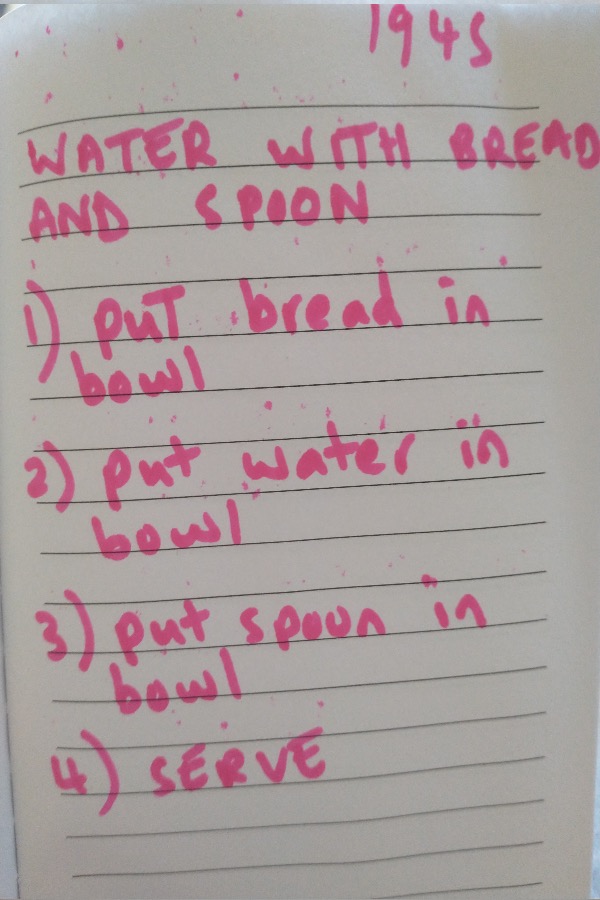 1945
WATER WITH BREAD
AND SPOON
1) PUT bread in
bowl
2) put water in
bowl
3) put spoon in
bowl
4) SERVE